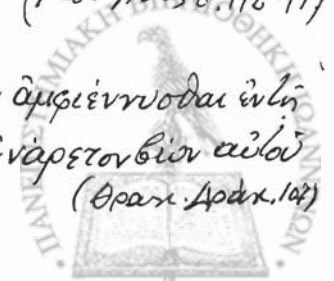 ἀμφιέννυσθαι ἐν τῇ
ἐνάρετον βίον αὐτοῦ
(Θρακ. Δράκ. 107)
ΠΑΝΕΠΙΣΤΗΜΙΑΚΗ ΒΙΒΛΙΟΘΗΚΗ ΙΩΑΝΝΙΝΩΝ